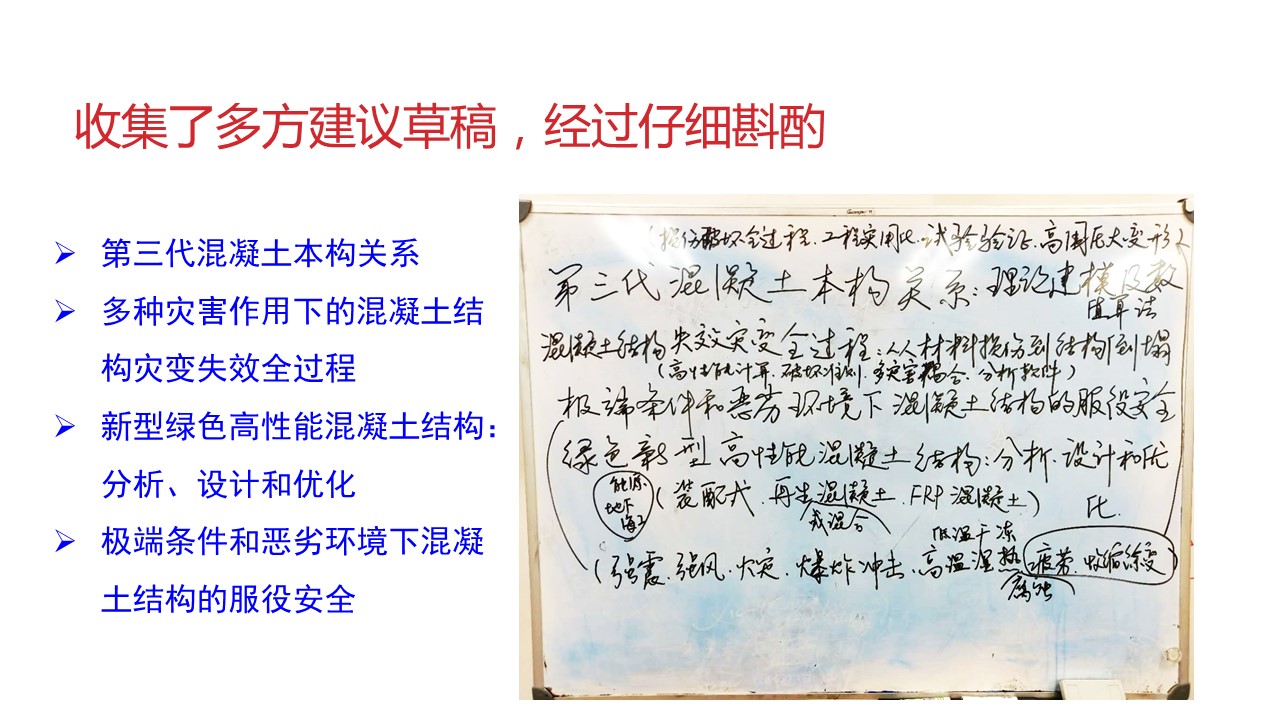 收集了多方建议草稿，经过仔细斟酌
第三代混凝土本构关系
多种灾害作用下的混凝土结
构灾变失效全过程
新型绿色高性能混凝土结构：
分析、设计和优化
极端条件和恶劣环境下混凝
土结构的服役安全
(损伤破坏全过程.工程实用化.试验验证.高围压大变形)
第三代混凝土本构关系:理论建模及数
值算法
混凝土结构失效灾变全过程:从材料损伤到结构倒塌
(高性能计算.破坏准则.多灾害耦合.分析软件)
极端条件和恶劣环境下混凝土结构的服役安全
绿色新型高性能混凝土结构:分析.设计和优
化.
能源
地下
海工
(装配式.再生混凝土.FRP混凝土)
或混合
低温干冻
(强震.强风.火灾.爆炸冲击.高温湿热 疲劳.收缩徐变)
腐蚀